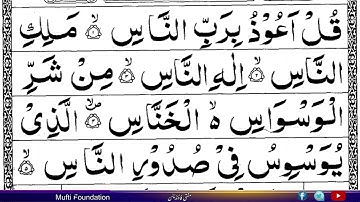 قُلْ اَعُوْذُ بِرَبِّ النَّاسِ ۙ۝ مَلِكِ
النَّاسِ ۙ۝ اِلٰهِ النَّاسِ ۙ۝ مِنْ شَرِّ
الْوَسْوَاسِ ۙ۬ الْخَنَّاسِ ۪ۙ۝ الَّذِیْ
یُوَسْوِسُ فِیْ صُدُوْرِ النَّاسِ ۙ۝
Mufti Foundation